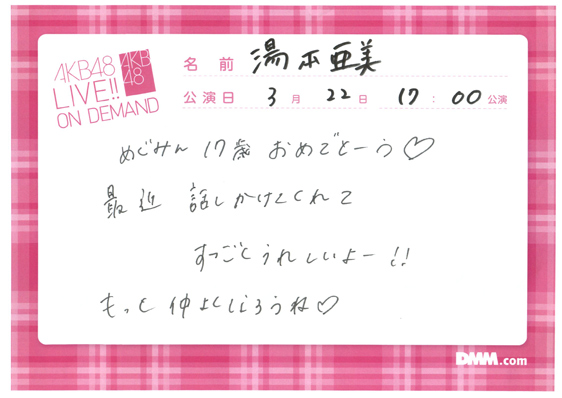 AKB48
LIVE!!
ON DEMAND
AKB
48
名前 湯本亜美
公演日 3月 22日 17:00公演
めぐみん 17歳 おめでとーう♡
最近 話しかけてくれて
すっごくうれしいよー!!
もっと仲よくしようね♡
DMM.com